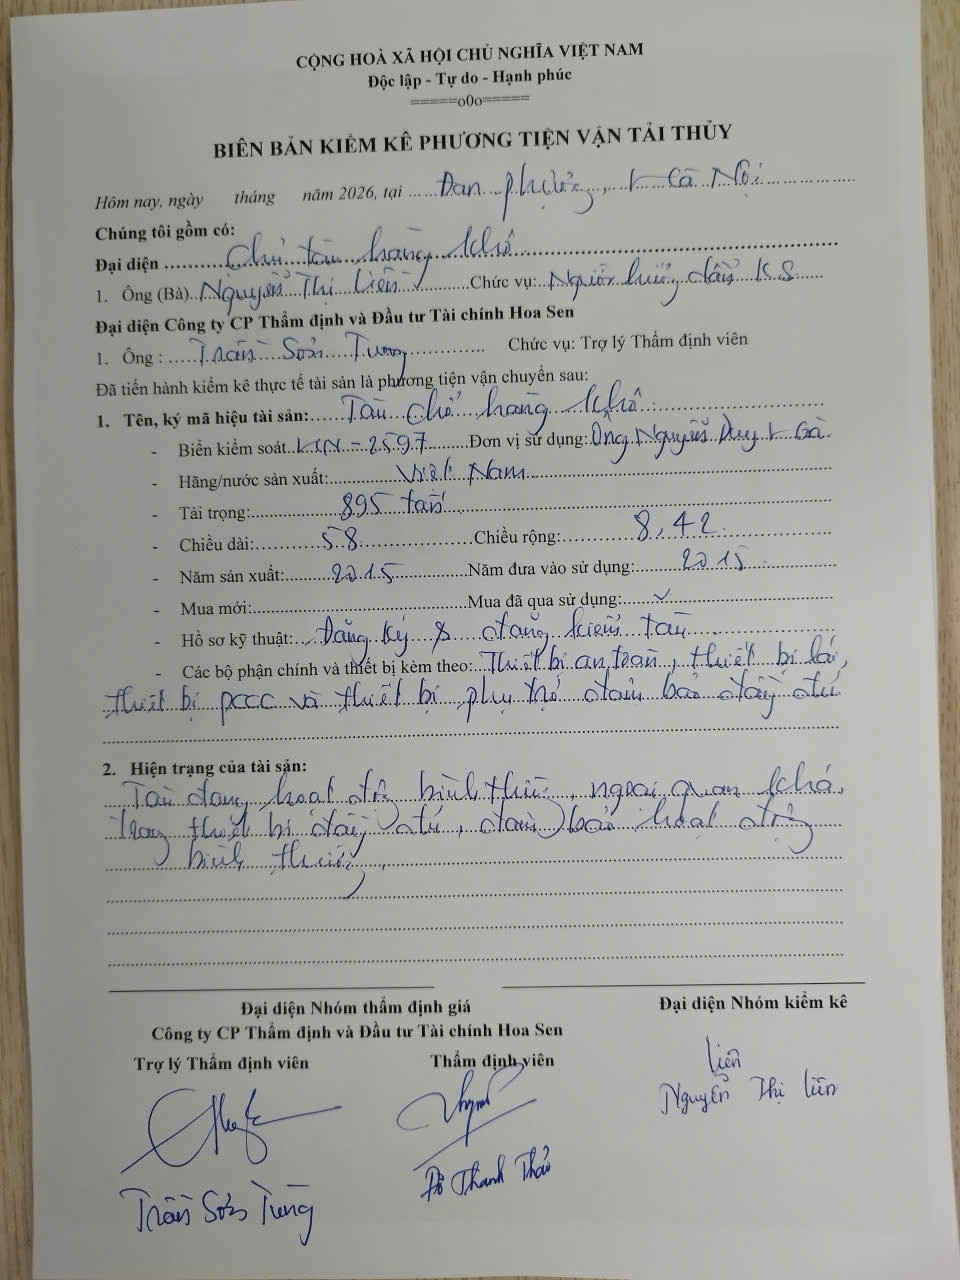 CỘNG HOÀ XÃ HỘI CHỦ NGHĨA VIỆT NAM
Độc lập - Tự do - Hạnh phúc
=====o0o=====
BIÊN BẢN KIỂM KÊ PHƯƠNG TIỆN VẬN TẢI THỦY
Hôm nay, ngày tháng năm 2026, tại Đan Phượng, Hà Nội
Chúng tôi gồm có:
Đại diện Chủ tàu hàng khô
1. Ông (Bà) Nguyễn Thị Liên Chức vụ: Người hướng dẫn KS
Đại diện Công ty CP Thẩm định và Đầu tư Tài chính Hoa Sen
1. Ông : Trần Sơn Tùng Chức vụ: Trợ lý Thẩm định viên
Đã tiến hành kiểm kê thực tế tài sản là phương tiện vận chuyển sau:
1. Tên, ký mã hiệu tài sản: Tàu chở hàng khô
- Biển kiểm soát -2597 Đơn vị sử dụng: Ông Nguyễn Duy Hà
- Hãng/nước sản xuất: Việt Nam
- Tải trọng: 895 tấn
- Chiều dài: 58 Chiều rộng: 8,42
- Năm sản xuất: 2015 Năm đưa vào sử dụng: 2015
- Mua mới: Mua đã qua sử dụng: ✓
- Hồ sơ kỹ thuật: Đăng ký & đăng kiểm tàu
- Các bộ phận chính và thiết bị kèm theo: Thiết bị an toàn, thiết bị lái,
thiết bị PCCC và thiết bị phụ trợ đảm bảo đầy đủ
2. Hiện trạng của tài sản:
Tàu đang hoạt động bình thường, ngoại quan khá,
trang thiết bị đầy đủ, đảm bảo hoạt động
bình thường.
Đại diện Nhóm thẩm định giá
Đại diện Nhóm kiểm kê
Công ty CP Thẩm định và Đầu tư Tài chính Hoa Sen
Trợ lý Thẩm định viên Thẩm định viên
Liên
Nguyễn Thị Liên
Đỗ Thanh Thảo
Trần Sơn Tùng